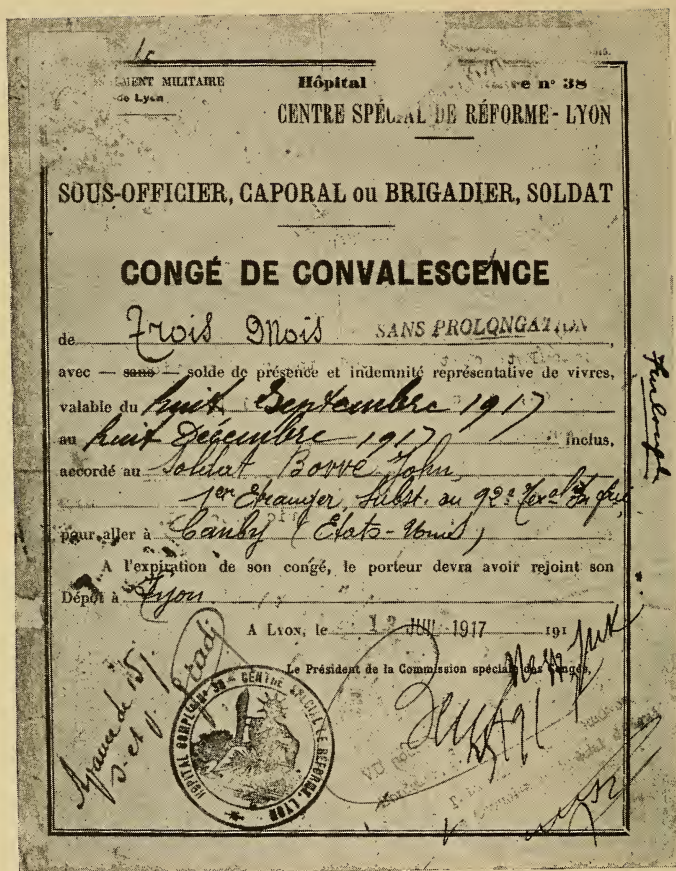 MENT MILITAIRE
de Lyon
Hôpital re nº 38
CENTRE SPÉCIAL DE RÉFORME - LYON
SOUS-OFFICIER, CAPORAL ou BRIGADIER, SOLDAT
CONGÉ DE CONVALESCENCE
de Trois Mois SANS PROLONGATION
avec — sans — solde de présence et indemnité représentative de vivres,
valable du huit Septembre 1917
au huit Décembre 1917 inclus,
accordé au Soldat Bovve John
1er Etranger, Subst. au 92e
pour aller à Canby (Etats-Unis)
A l'expiration de son congé, le porteur devra avoir rejoint son
Dépôt à Lyon
A LYON, le 12 JUIL 1917 191
Le Président de la Commission spéciale des Congés,
Furlough
HÔPITAL COMPL. Nº 38 - CENTRE SPÉCIAL DE RÉFORME, LYON